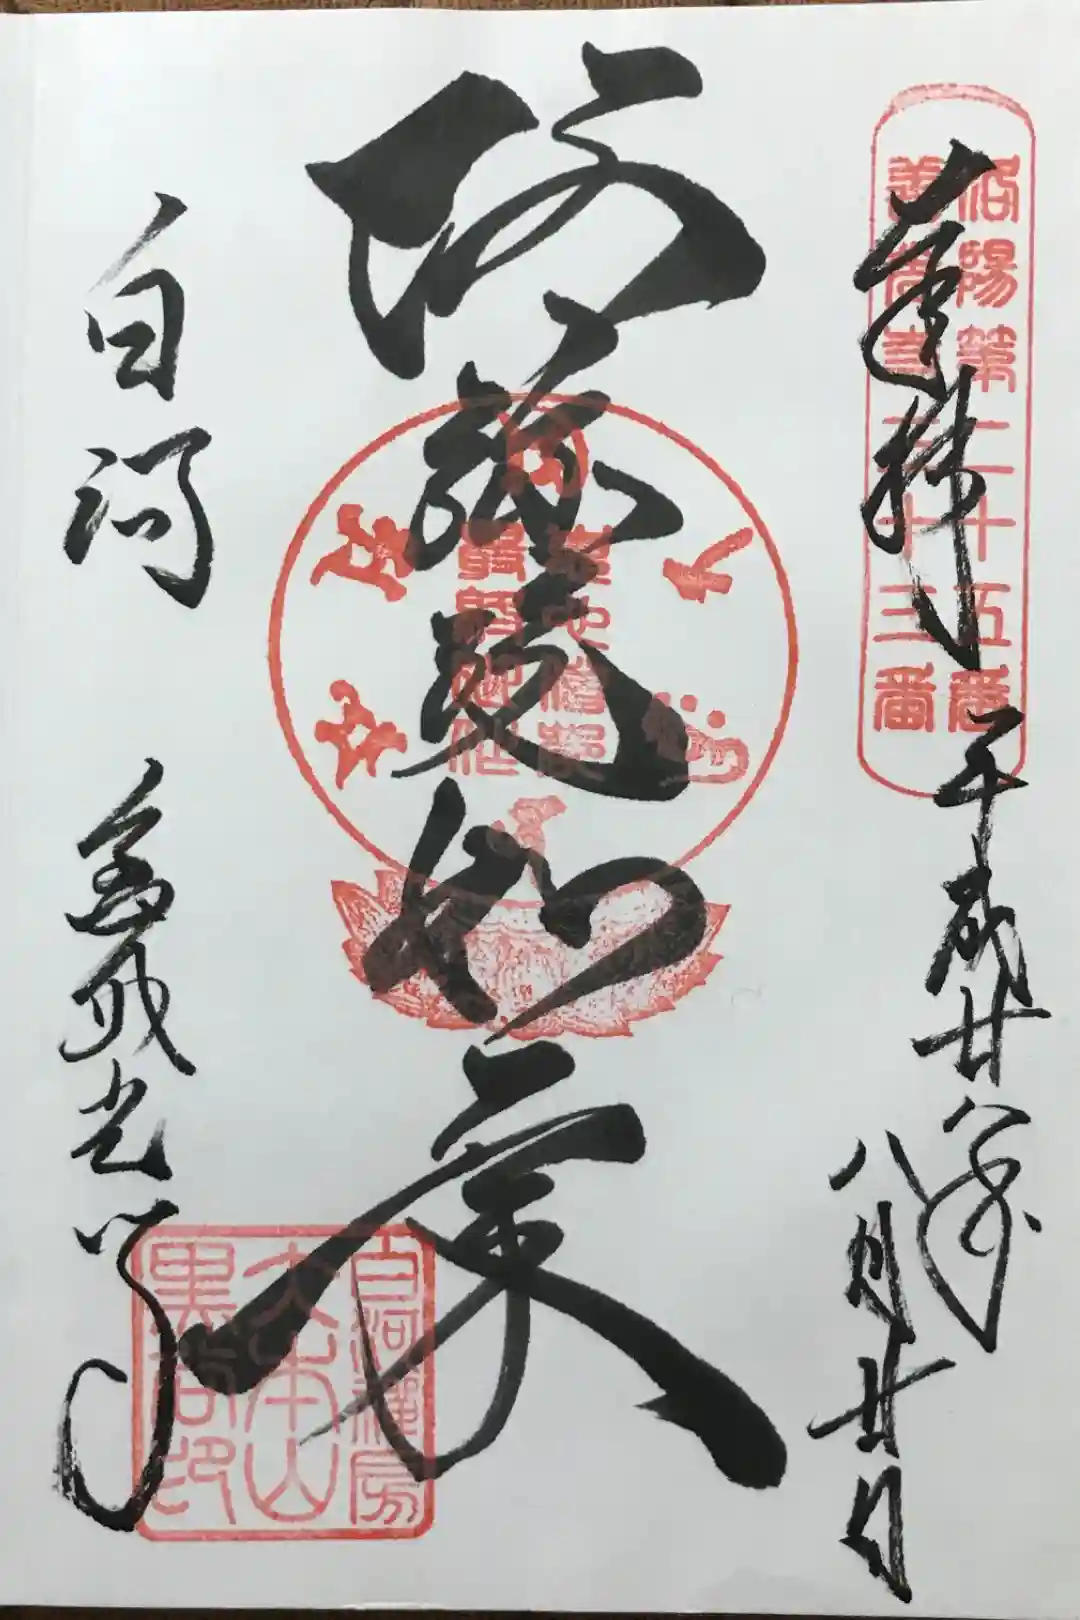 洛陽第二十五番
三十三番
奉拝
平成廿八年
八月廿日
阿弥陀如来
白河
金戒光明寺
白河禅房
大本山
黒谷印